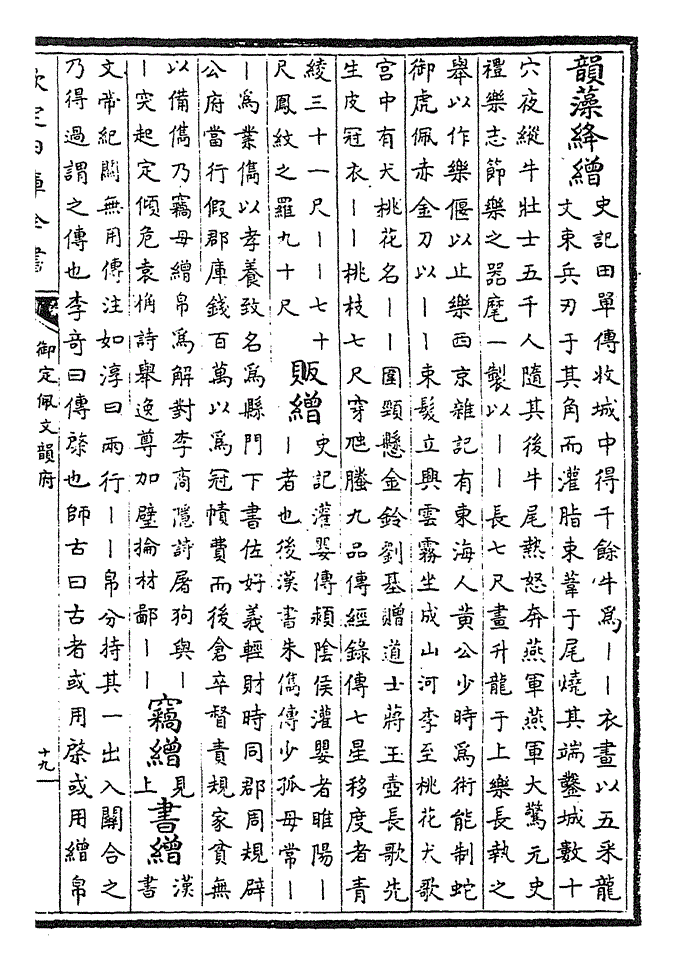 韻藻絳繒 史記田單傳收城中得千餘牛爲丨丨衣畫以五采龍
文束兵刃于其角而灌脂束葦于尾燒其端鑿城數十
穴夜縱牛壯士五千人隨其後牛尾熱怒奔燕軍燕軍大驚元史
禮樂志節樂之器麾一製以丨丨長七尺畫升龍于上樂長執之
舉以作樂偃以止樂西京雜記有東海人黃公少時爲術能制蛇
御虎佩赤金刀以丨丨束髮立興雲霧坐成山河李至桃花犬歌
宮中有犬桃花名丨丨圍頸懸金鈴劉基贈道士蔣玉壺長歌先
生皮冠衣丨丨桃枝七尺穿虺螣九品傳經錄傳七星移度者青
綾三十一尺丨丨七十
尺鳳紋之羅九十尺
販繒 史記灌嬰傳潁陰侯灌嬰者睢陽丨
丨者也後漢書朱儁傳少孤母常丨
丨爲業儁以孝養致名爲縣門下書佐好義輕財時同郡周規辟
公府當行假郡庫錢百萬以爲冠幘費而後倉卒督責規家貧無
以備儁乃竊母繒帛爲解對李商隱詩屠狗與丨
丨突起定傾危袁桷詩舉逸尊加璧掄材鄙丨丨
竊繒 見上
書繒 漢書
文帝紀關無用傳注如淳曰兩行丨丨帛分持其一出入關合之
乃得過謂之傳也李奇曰傳棨也師古曰古者或用棨或用繒帛
欽定四庫全書
御定佩文韻府
十九